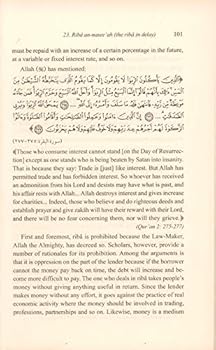 23. Ribā an-nasee'ah (the ribā in delay) 101
must be repaid with an increase of a certain percentage in the future,
at a variable or fixed interest rate, and so on.
Allah has mentioned:
﴿الَّذِينَ يَأْكُلُونَ الرِّبَا لَا يَقُومُونَ إِلَّا كَمَا يَقُومُ الَّذِي يَتَخَبَّطُهُ الشَّيْطَانُ مِنَ
﴾Those who consume interest cannot stand [on the Day of Resurrec-
tion] except as one stands who is being beaten by Satan into insanity.
That is because they say: Trade is [just] like interest. But Allah has
permitted trade and has forbidden interest. So whoever has received
an admonition from his Lord and desists may have what is past, and
his affair rests with Allah... Allah destroys interest and gives increase
for charities... Indeed, those who believe and do righteous deeds and
establish prayer and give zakāh will have their reward with their Lord,
and there will be no fear concerning them, nor will they grieve.﴿
(Qur'an 2: 275-277)
First and foremost, ribā is prohibited because the Law-Maker,
Allah the Almighty, has decreed so. Scholars, however, provide a
number of rationales for its prohibition. Among the arguments is
that it is oppression on the part of the lender because if the borrower
cannot the money pay back on time, the debt will increase and be-
come more difficult to pay. The one who deals in ribā takes people's
money without giving anything useful in return. Since the lender
makes money without any effort, it goes against the practice of real
economic activity where the money should be involved in trading,
professions, partnerships and so on. Likewise, money is a medium